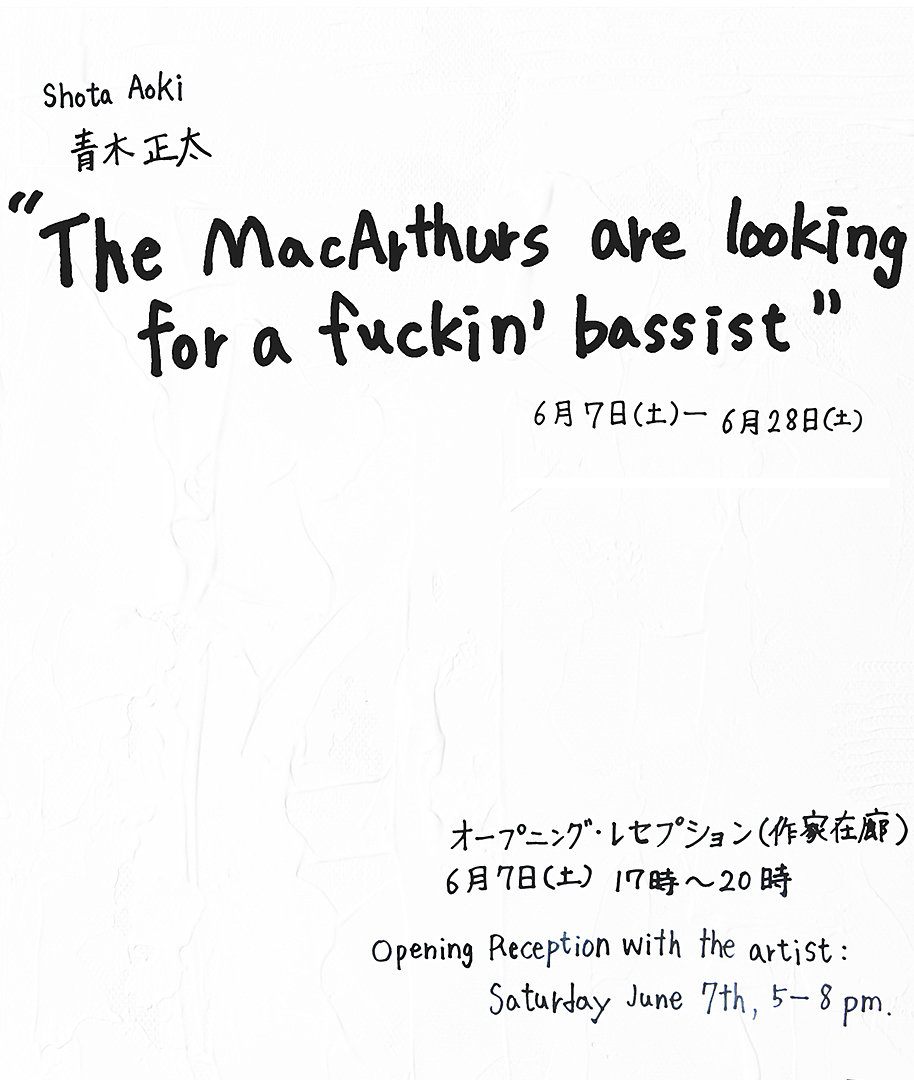 Shota Aoki
青木正太
"The MacArthurs are looking
for a fuckin' bassist"
6月7日(土)ー 6月28日(土)
オープニング・レセプション(作家在廊)
6月7日(土) 17時〜20時
Opening Reception with the artist:
Saturday June 7th, 5-8 pm.